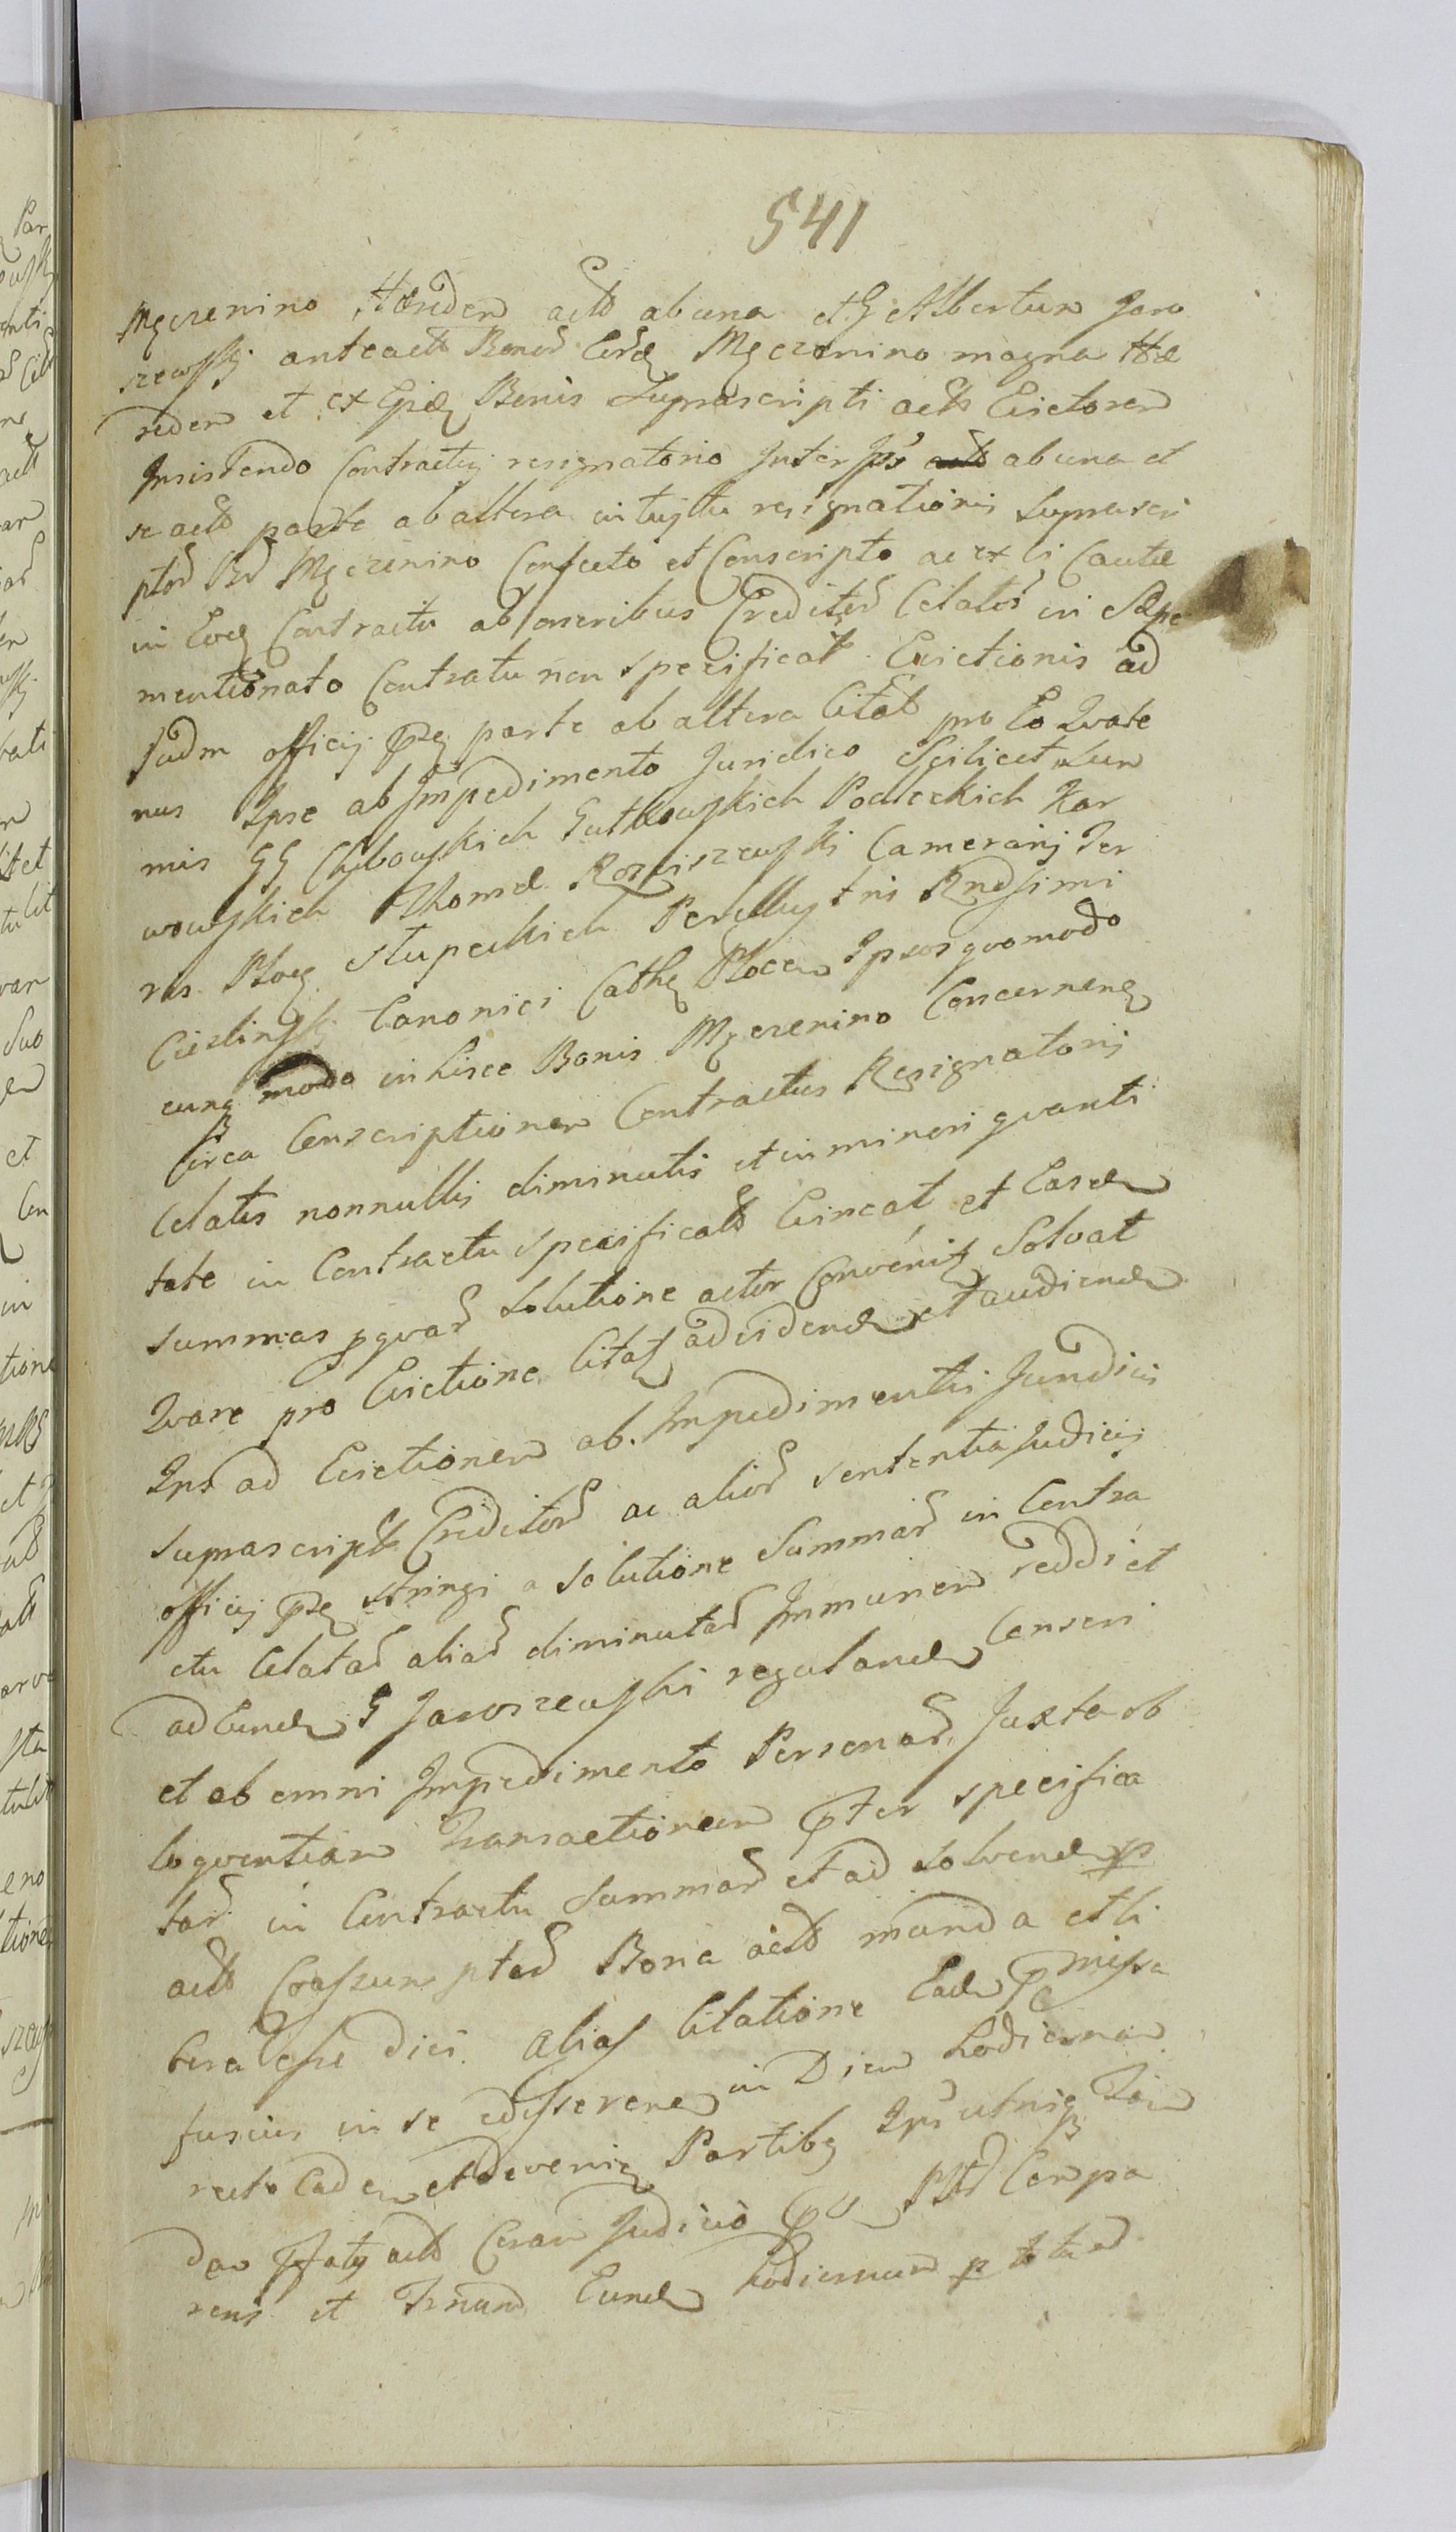 541
Męczenino Hæredem actt ab una et G Albertum Jaro
szewskj anteactt Bonor Eord Męczenino magna Hæ
redem et ex Ejsd Bonis Suprascripti actt Evictorem
Insistendo Contractuj resignatorio Inter Ips ab una et
se actt parte ab altera intujtu resignationis Suprascri
ptor Br Męczenino Confecto et Conscripto ac ex Cautæ
in Eod Contractu ab oneribus Creditor Celator in Sæpe
mentionato Contratu non specificat Evictionis ad
Judm officij parte ab altera Citat pro Eo Quate
nus Ipse ab Impedimento Juridico Scilicet Sum
mis GG Chybowskich Gutkowskich Podleckich Kar
wowskich Thomæ Rosciszewski Camerarij Ter
ris Ploc Słupeckich Perillustris Rndssimi
Cieslinskj Canonici Cath Plocen Ipsos quomodo
cunq modo in hisce Bonis Męczenino Concernen
Circa Conscriptionem Contractus Resignatorij
Celatis nonnullis diminutis et in minori quanti
tate in Contractu specificatt Evincat et Easdem
summas quar solutione actor Convenit Solvat
Quare pro Evictione Citat ad vidend et audiend
Ips ad Evictionem ab Impedimentis Juridicis
suprascript Creditor ac alior sententia Judicij
officij stringi a solutione Summar in Contra
ctu Celatar aliar diminutar Immunem reddi et
ad Eund G Jaroszewski reguland Censeri
et ab omni Impedimento Personar Juxta ob
loquentiam Transactionem pter specifica
tar in Contractu Summar et ad solvend p
actt Crassumptar Bona actt munda et li
bera Esse dici. Alias Citatione Ead pmissa
fusius in se edisseren in Diem hodiernam
recto Cadem et deveni Partibq Ips utriq
dem actt Coram Judicio Compa
rens et Trnum Eund hodiernum p